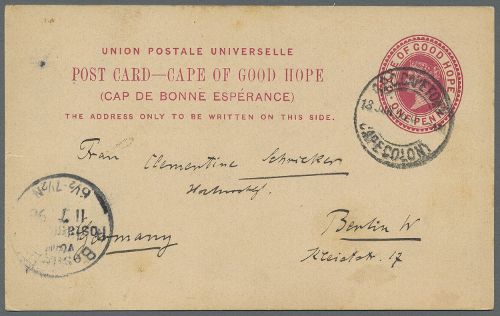 UNION POSTALE UNIVERSELLE
POST CARD—CAPE OF GOOD HOPE
(CAP DE BONNE ESPÉRANCE)
THE ADDRESS ONLY TO BE WRITTEN ON THIS SIDE.
CAPE OF GOOD HOPE
ONE PENNY
CAPE COLONY
Frau Clementine Schricker
Berlin W
Germany
Kleiststr. 17
11 7